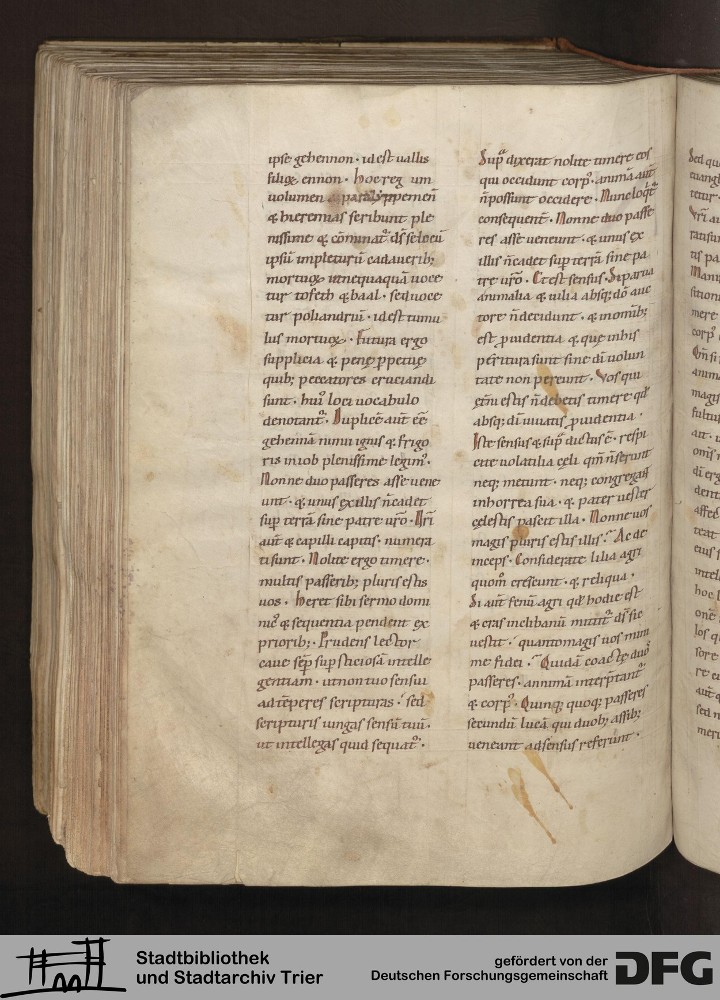 ipse gehennon· id est uallis
filiorꝝ ennon· hoc reg um
uolumen & paralyppemen̄
& hieremias scribunt ple
nissime & cōminat᷑ dꝰ se locū
ipsū impleturū cadauerib;
mortuoꝝ ut nequaquā uoce
tur tofeth & baal· sed uoce
tur poliandriū· id est tumu
lus mortuoꝝ· Futura ergo
supplicia & penę p̱petuę
quib; peccatores cruciandi
sunt· huiꝰ loci uocabulo
denotant᷑. Duplicē aut̄ ēē
gehennā nimii ignis & frigo
ris in iob plenissime legimꝰ·
Nonne duo passeres asse uene
unt· & unus ex illis n̄ cadet
sup̱ terrā sine patre ur̄o· Ur̄i
aut̄ & capilli capitis· numera
ti sunt· Nolite ergo timere·
multis passerib; pluris estis
uos· Heret sibi sermo domi
nicꝰ & sequentia pendent ex
priorib;· Prudens lector
caue sep̱ sup̱sticiosā intelle
gentiam· ut non tuo sensui
adtēperes scripturas· sed
scripturis iungas sensū tuū·
ut intellegas quid sequat᷑·
Supᵃ dixerat nolite timere eos
qui occidunt corpꝰ· animā aut̄
n̄ possunt occidere· Nunc loqt᷑
consequent᷑· Nonne duo passe
res asse ueneunt· & unus ex
illis n̄ cadet sup̱ terrā sine pa
tre ur̄o· Et est sensus· Si parua
animalia & uilia absq; dō auc
tore n̄ decidunt· & in omīb;
est p̱uidentia & que in his
peritura sunt sine dī uolun
tate non pereunt· Vos qui
ęt̄ni estis n̄ debetis timere qd̄
absq; dī uiuatis p̱uidentia·
Iste sensus & supᵃ dictus ē· respi
cite uolatilia cęli qm̄ n̄ serunt
neq; metunt· neq; congregant
in horrea sua· & pater uester
cęlestis pascit illa· Nonne uos
magis pluris estis illis· Ac de
inceps· Considerate lilia agri
quom̄ crescunt· & reliqua·
Si aut̄ fenū agri qd̄ hodie est
& cras in clibanū mittit᷑ dꝰ sic
uestit· quanto magis uos mini
me fidei· Quidā coacte duoꝰ
passeres· animam interp̱tant᷑
& corpꝰ· Quinq; quoq; passeres
secundū lucā qui duob; assib;
ueneant ad sensus referunt·
Stadtbibliothek
und Stadtarchiv Trier
gefördert von der
Deutschen Forschungsgemeinschaft
DFG